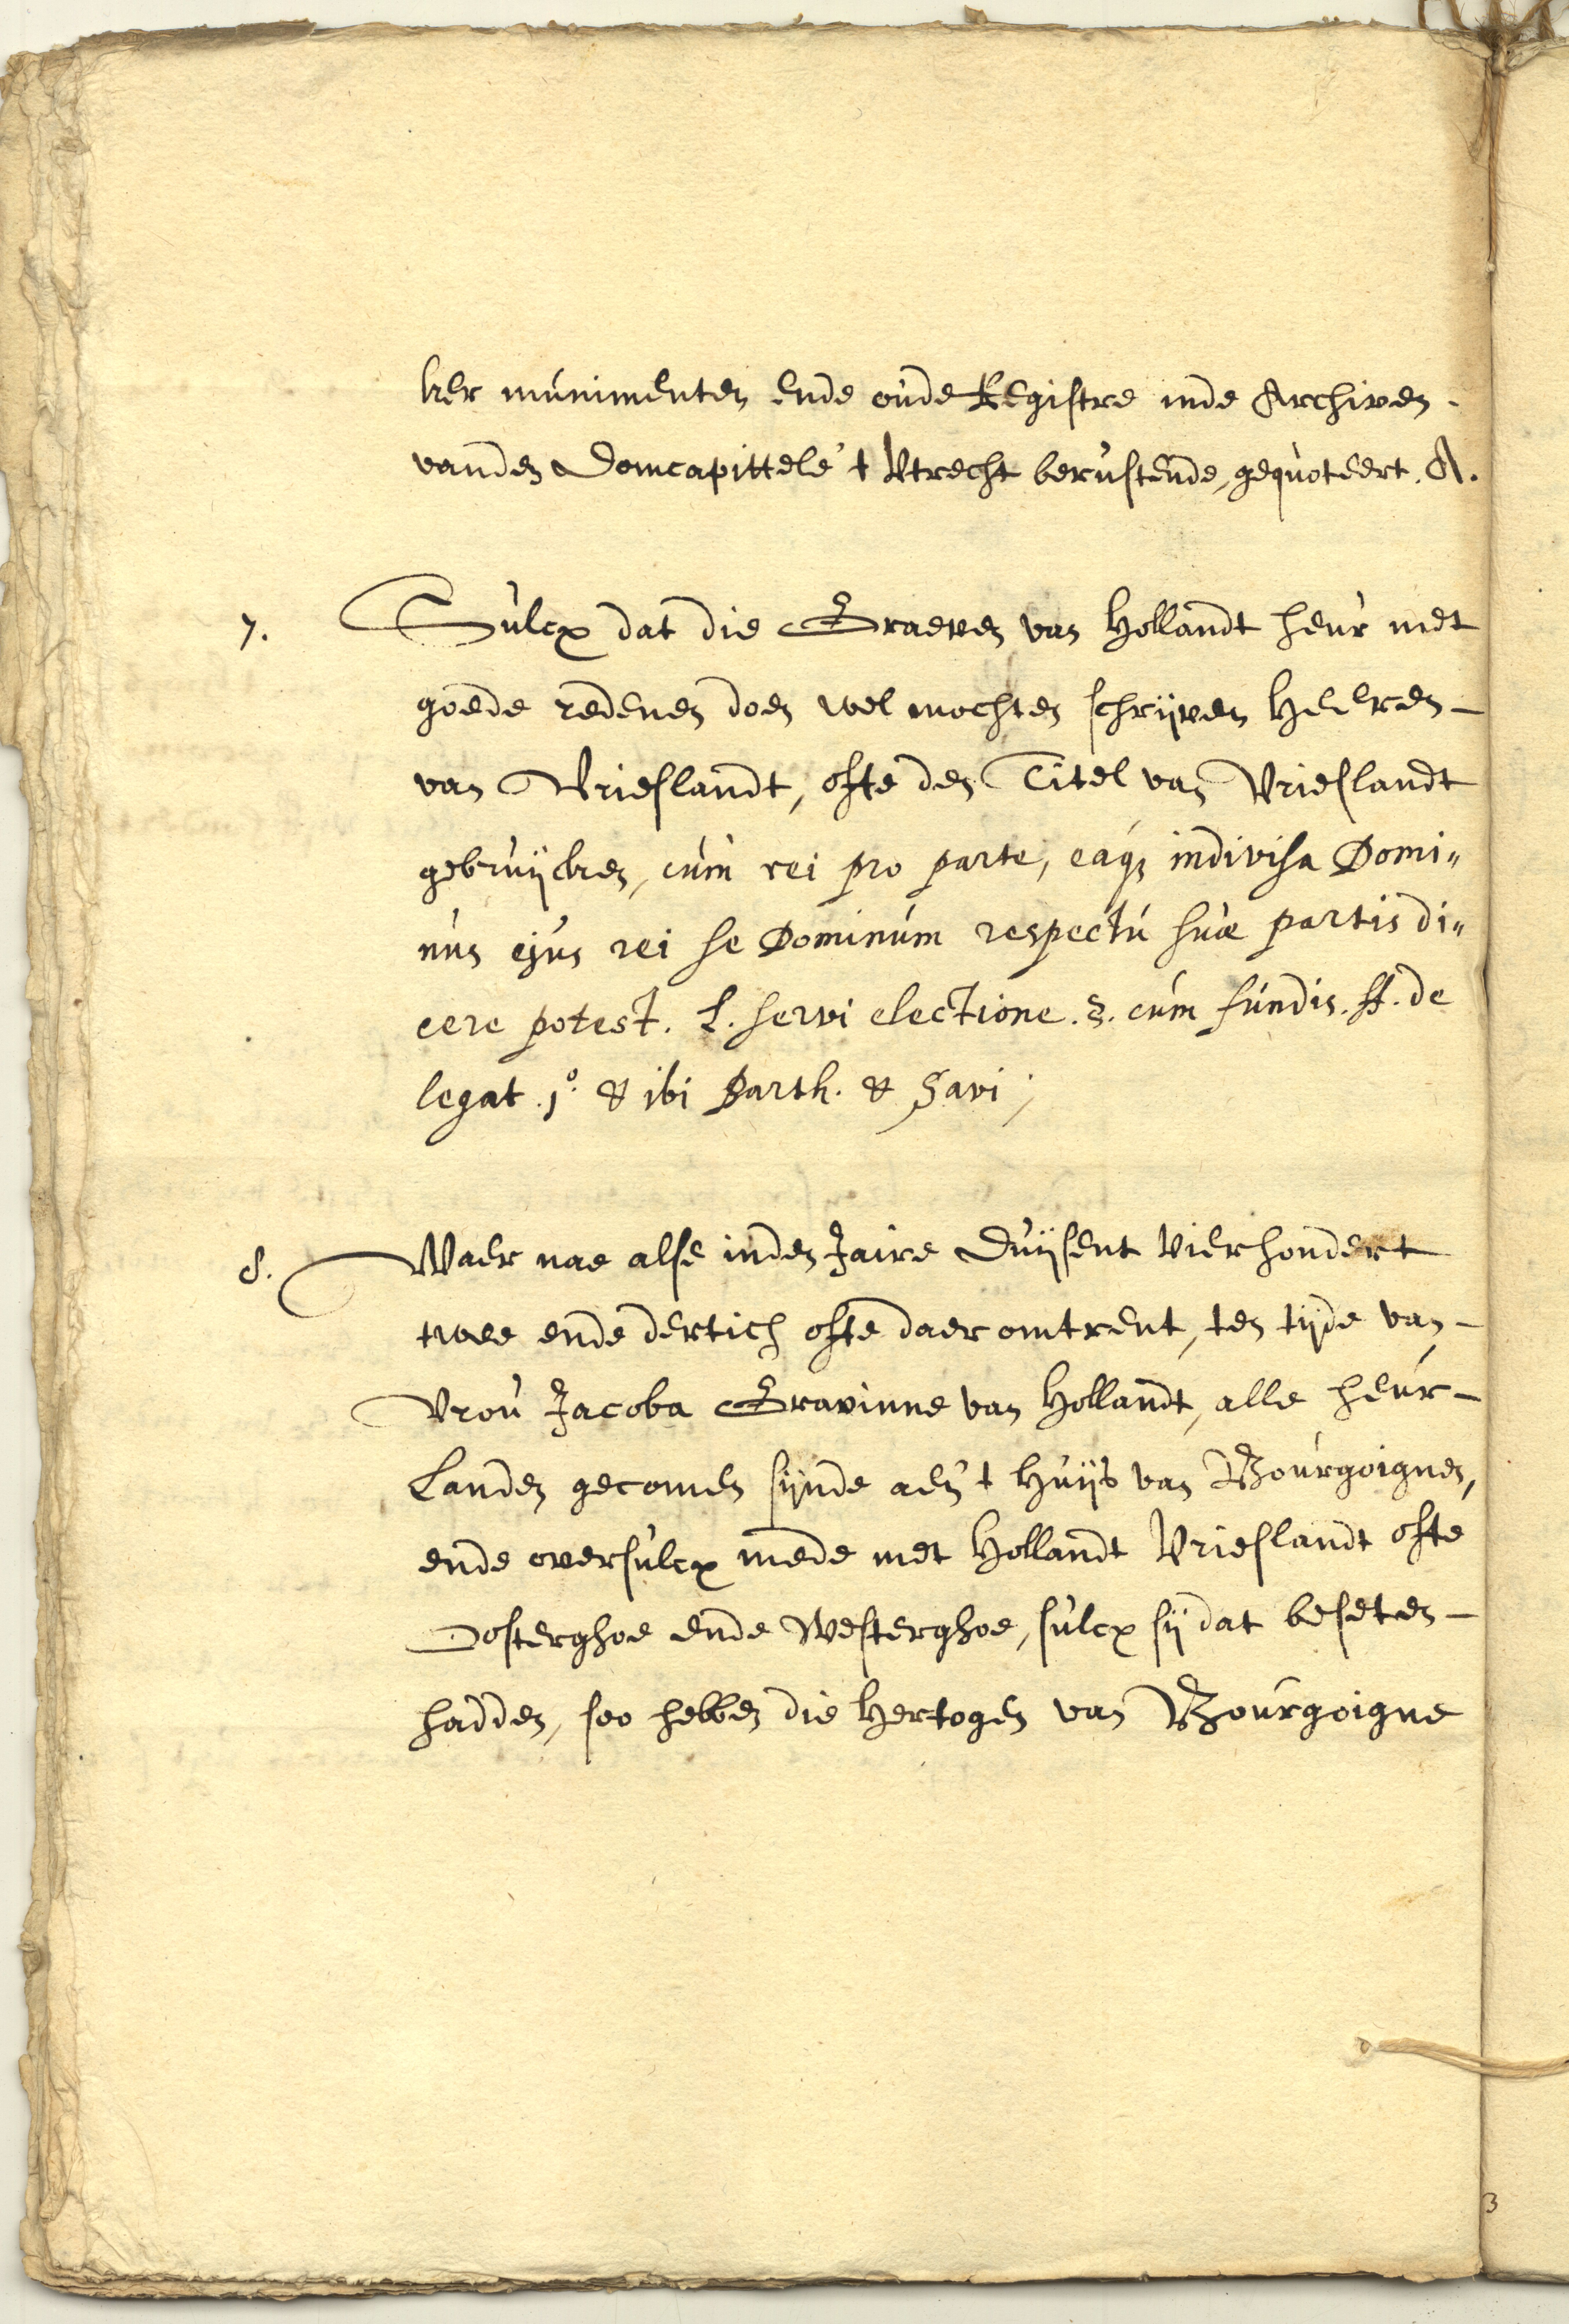 ker munimenten ende oude Registre inde Archiven.
vanden Domcapittele 't Utrecht berustende, gequoteert. A.
7. Sulcx dat die Graeven van Hollandt heur met
goede redenen doen wel mochten schrijven Heeren –
van Vrieslandt, ofte den Titel van Vrieslandt
gebruijcken, cum rei pro parte, eaq; indivisa Domi„
nus ejus rei se Dominum respectu suæ partis di„
cere potest. L. servi electione. §. cum fundis. ff. de
legat. 1º. & ibi Barth. & Savi;
8. Waer nae alse inden Jaire Duijsent Vierhondert
twee ende dertich ofte daer omtrent, ten tijde van –
Vrou Jacoba Gravinne van Hollandt, alle heur –
Landen gecomen sijnde aen 't Huijs van Bourgoignen,
ende oversulcx mede met Hollandt Vrieslandt ofte
Oosterghoe ende Westerghoe, sulcx sij dat beseten –
hadden, soo hebben die Hertogen van Bourgoigne
3